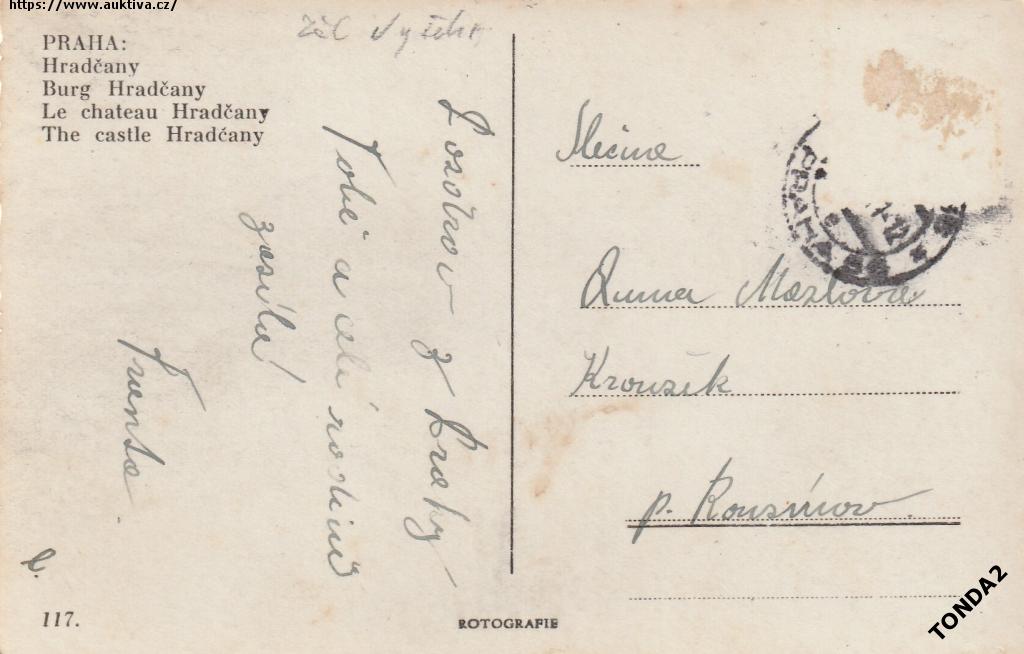 https://www.auktiva.cz/
PRAHA:
Hradčany
Burg Hradčany
Le chateau Hradčany
The castle Hradčany
Pozdrav z Prahy
Tobě a celé rodině
zasílá
Frenta
117.
ROTOGRAFIE
Slečna
Anna Mazlova
Kroužek
p. Rousínov
PRAHA
TONDA2